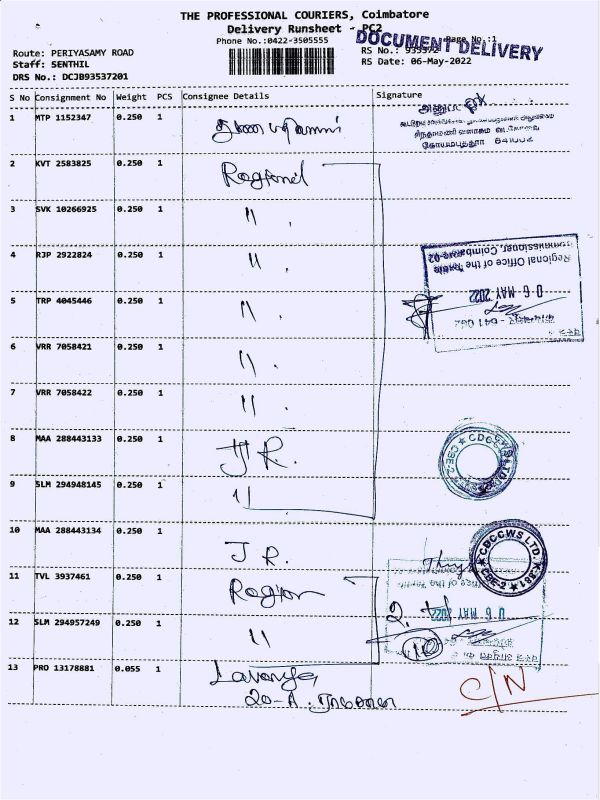 THE PROFESSIONAL COURIERS, Coimbatore
Delivery Runsheet - PC2
Phone No.:0422-3505555
Page No.:1
DOCUMENT DELIVERY
Route: PERIYASAMY ROAD
Staff: SENTHIL
RS Date: 06-May-2022
DRS No.: DCJB93537201
S No Consignment No Weight PCS Consignee Details Signature
1 MTP 1152347 0.250 1
2 KVT 2583825 0.250 1 Regional
3 SVK 10266925 0.250 1 "
4 RJP 2922824 0.250 1 "
Regional Office of the Textile
Commissioner, Coimbatore-02
5 TRP 4045446 0.250 1 "
06 MAY 2022
641 002
6 VRR 7058421 0.250 1 "
7 VRR 7058422 0.250 1 "
8 MAA 288443133 0.250 1 J R.
CBE-2
9 SLM 294948145 0.250 1 "
10 MAA 288443134 0.250 1 J R.
CDCCWS LTD. K-1881 CBE-2
11 TVL 3937461 0.250 1 Region
06 MAY 2022
12 SLM 294957249 0.250 1 "
13 PRO 13178881 0.055 1 Lavanya
20-A
C/N